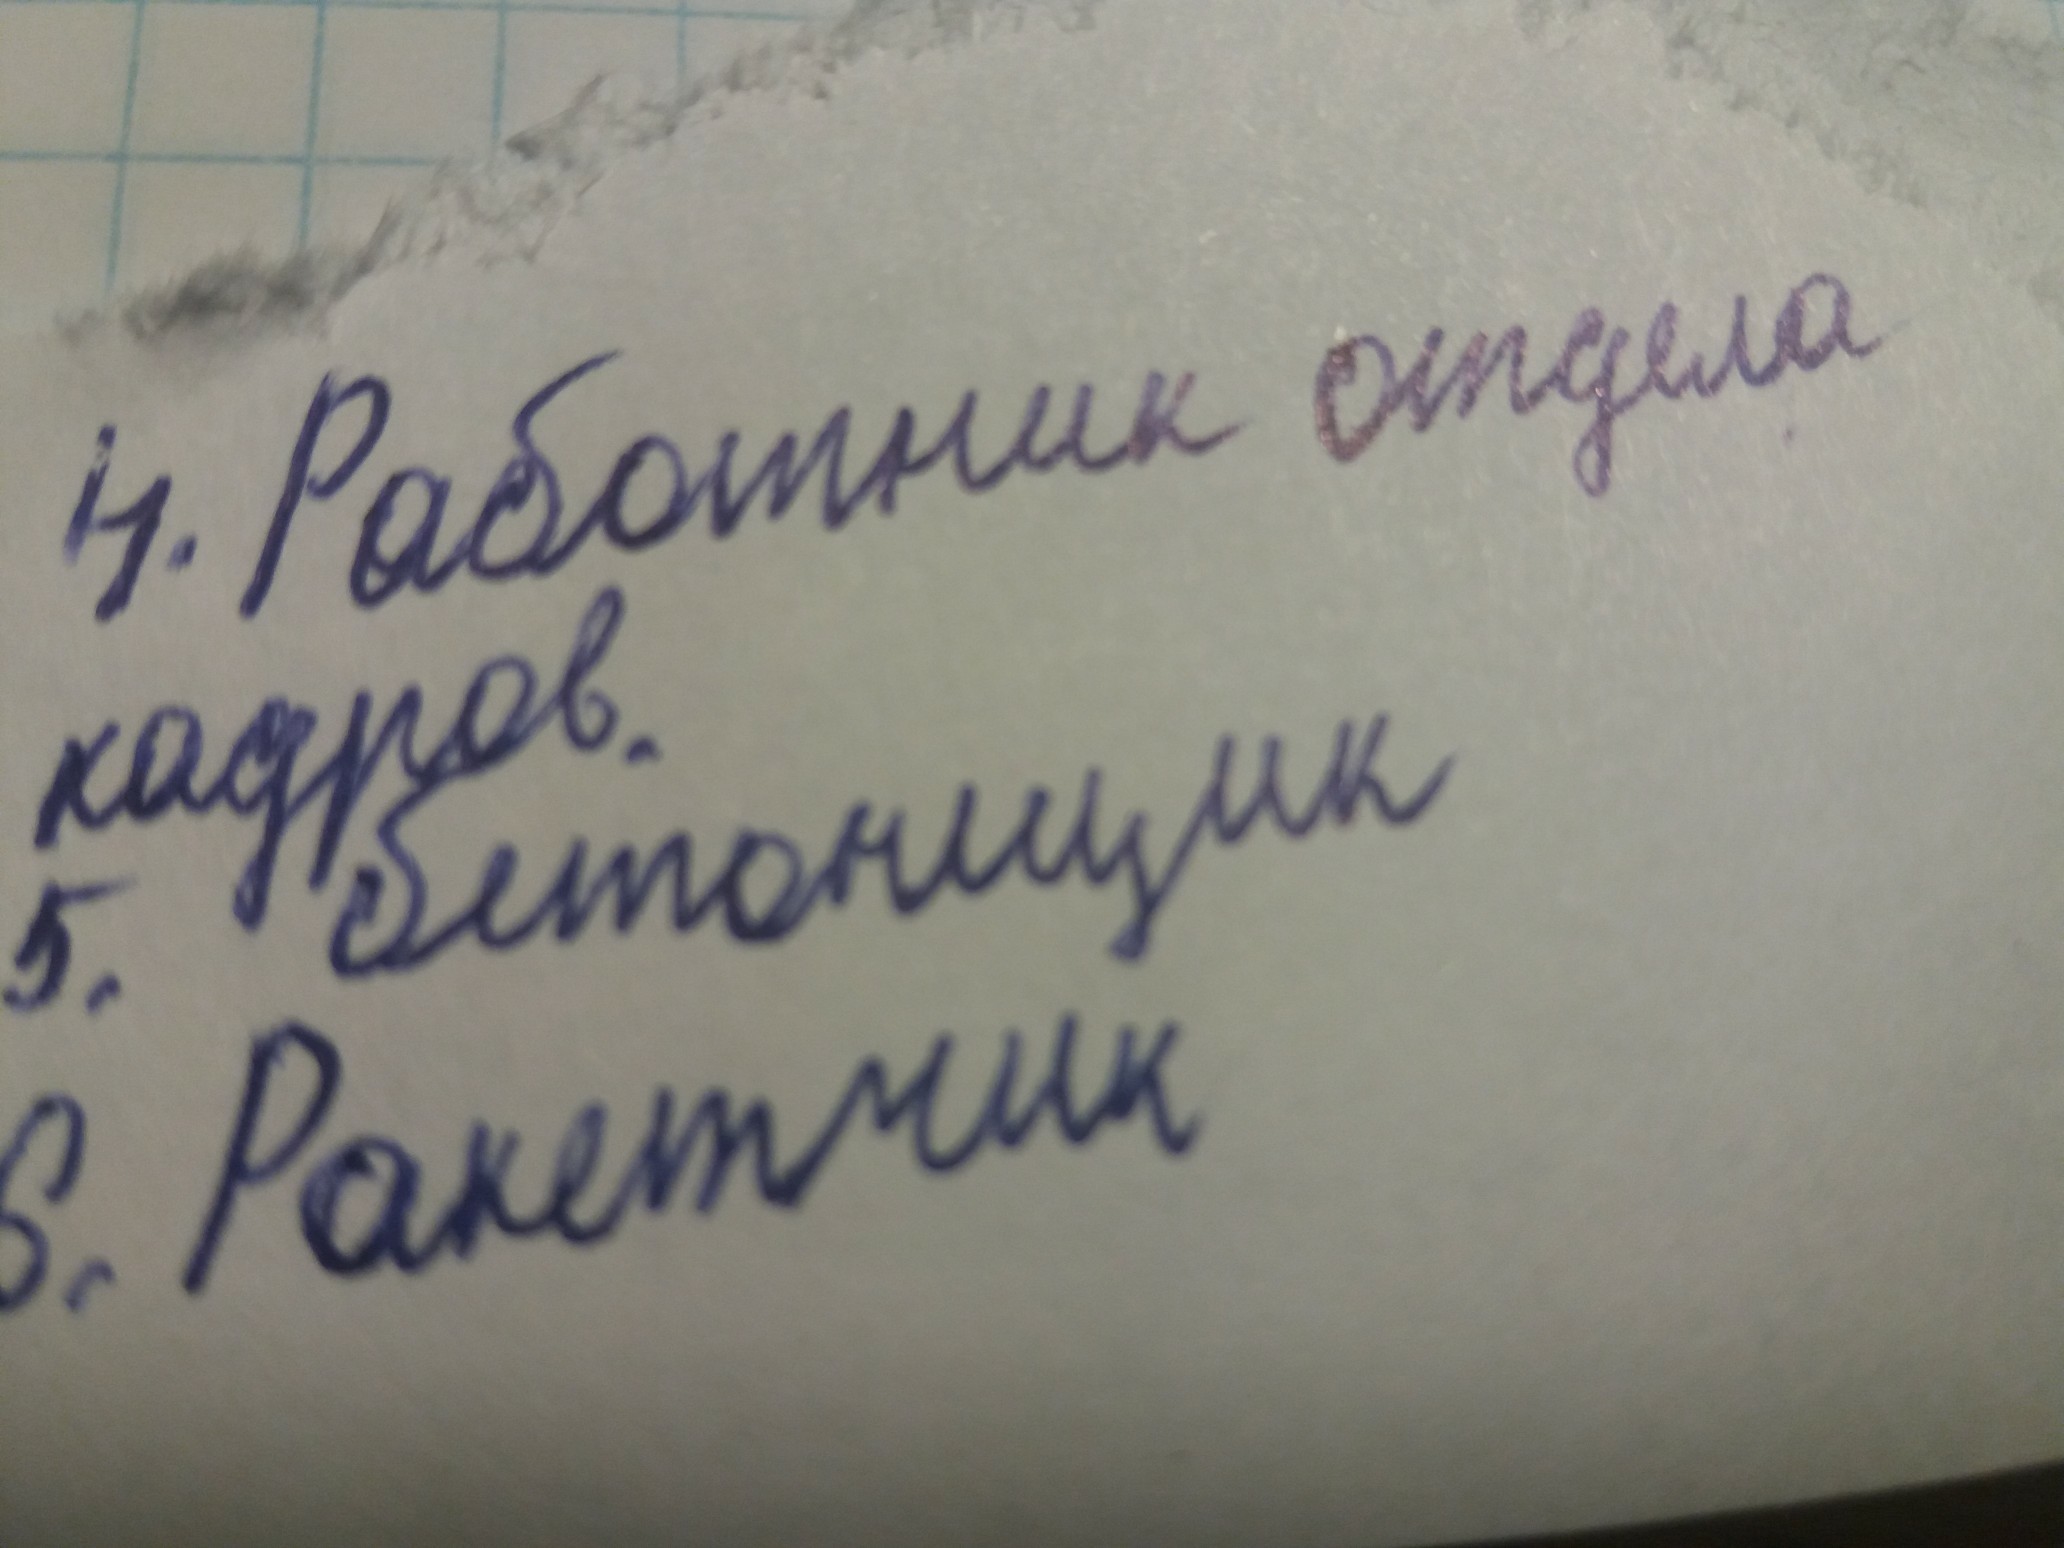 4. Работник отдела
кадров.
5. бетонщик
6. Ракетчик